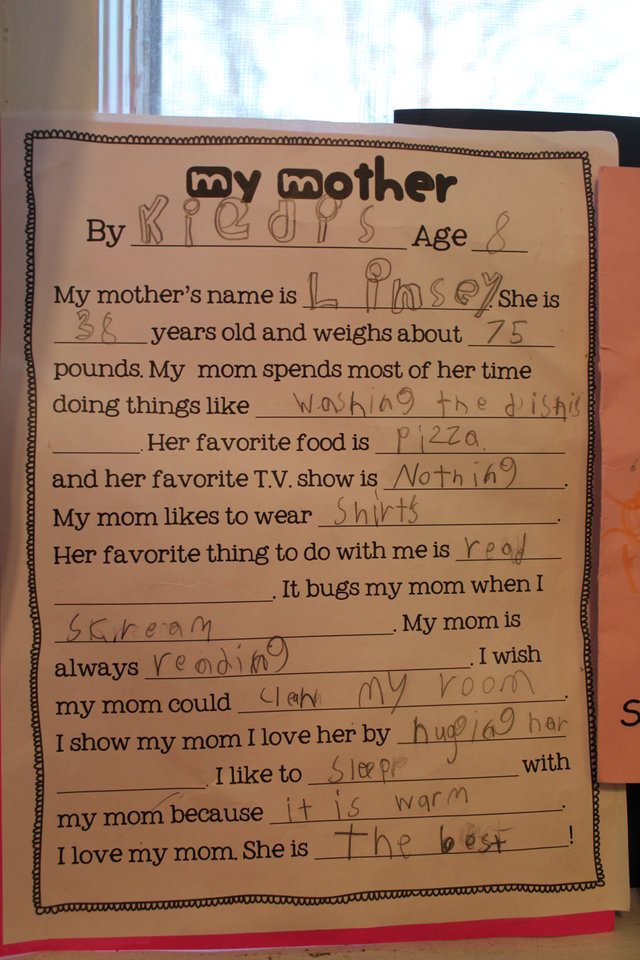 my mother
By Kiedis Age 8
My mother's name is Linsey. She is
38 years old and weighs about 75
pounds. My mom spends most of her time
doing things like washing the dishis
. Her favorite food is pizza.
and her favorite T.V. show is Nothing.
My mom likes to wear Shirts.
Her favorite thing to do with me is read
. It bugs my mom when I
skream. My mom is
always reading. I wish
my mom could clean my room.
I show my mom I love her by huging her
. I like to sleep with
my mom because it is warm.
I love my mom. She is the best!
S